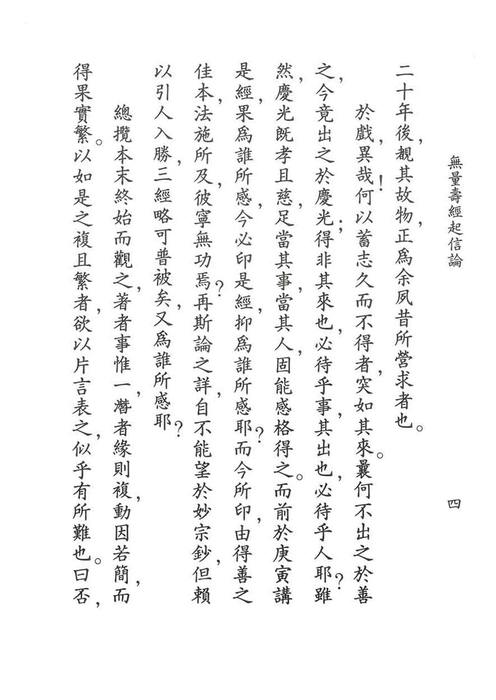 無量壽經起信論
四
二十年後，覩其故物，正為余夙昔所營求者也。
於戲異哉！何以蓄志久而不得者，突如其來。曩何不出之於善
之，今竟出之於慶光；得非其來也，必待乎事，其出也，必待乎人耶？雖
然，慶光既孝且慈，足當其事，當其人，固能感格得之。而前於庚寅講
是經，果為誰所感，今必印是經，抑為誰所感耶？而今所印，由得善之
佳本，法施所及，彼寧無功焉？再斯論之詳，自不能望於妙宗鈔，但賴
以引人入勝，三經略可普被矣，又為誰所感耶？
總攬本末終始而觀之，著者事惟一，潛者緣則複，動因若簡，而
得果實繁。以如是之複且繁者，欲以片言表之，似乎有所難也。曰否，